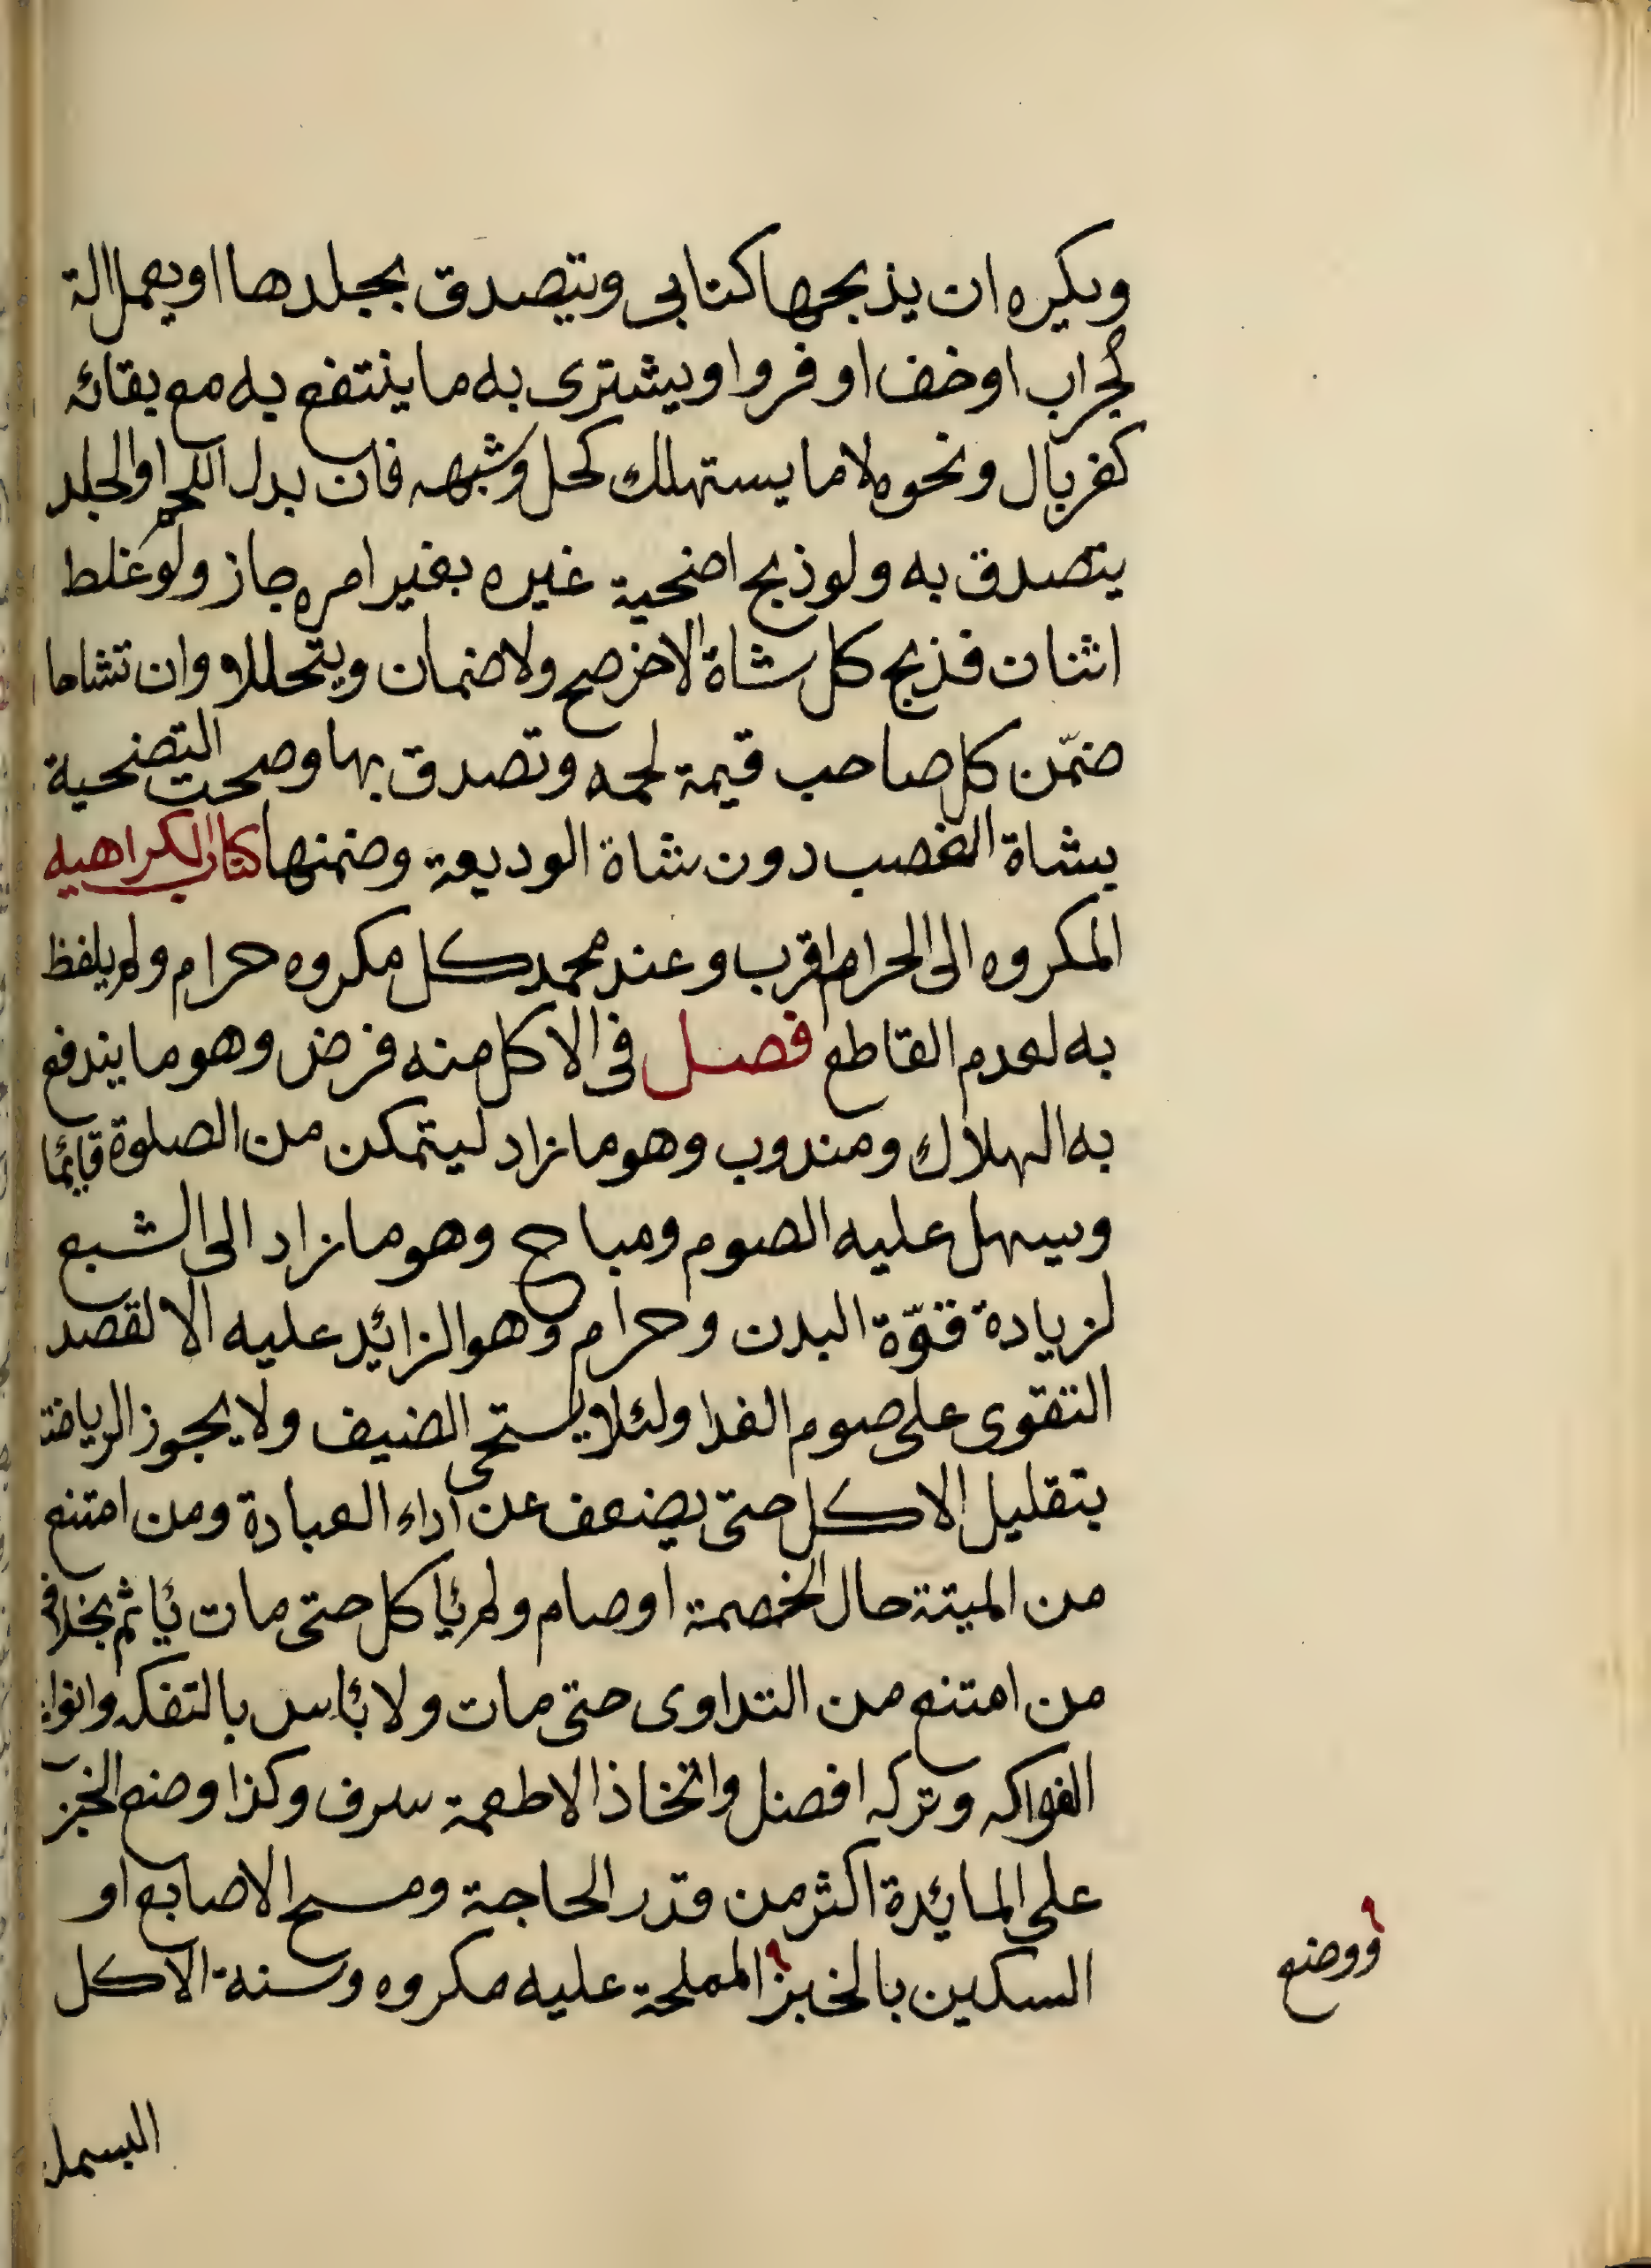 ويكره ان يذبحها كتابى ويتصدق بجلدها او يعمل الة
كجراب او خف او فرو او يشترى به ما ينتفع به مع بقائه
كغربال ونحوه لا ما يستهلك كخل وشبهه فان بدل اللحم او الجلد
يتصدق به ولو ذبح اضحية غيره بغير امره جاز ولو غلط
اثنان فذبح كل شاة الاخر صح ولا ضمان ويتحللا وان تشاحا
ضمّن كل صاحب قيمة لحمه وتصدق بها وصحت التضحية
بشاة الغصب دون شاة الوديعة وضمنها كتاب الكراهيه
المكروه الى الحرام اقرب وعند محمد كل مكروه حرام ولم يلفظ
به لعدم القاطع فصل فى الاكل منه فرض وهو ما يندفع
به الهلاك ومندوب وهو ما زاد ليتمكن من الصلوة قائما
ويسهل عليه الصوم ومباح وهو ما زاد الى الشبع
لزيادة قوّة البدن وحرام وهو الزائد عليه الا لقصد
التقوى على صوم الغدا ولئلا يستحى الضيف ولا يجوز الرياضة
بتقليل الاكل حتى يضعف عن اداء العبادة ومن امتنع
من الميتة حال الخصمة او صام ولم يأكل حتى مات يأثم بخلاف
من امتنع من التداوى حتى مات ولا بأس بالتفكه وانواع
الفواكه وتركه افضل واتخاذ الاطعمة سرف وكذا وضع الخبز
على المايدة اكثر من قدر الحاجة ومسح الاصابع او
السكين بالخبز المملحة عليه مكروه وسنة الاكل
او وضع
البسملة